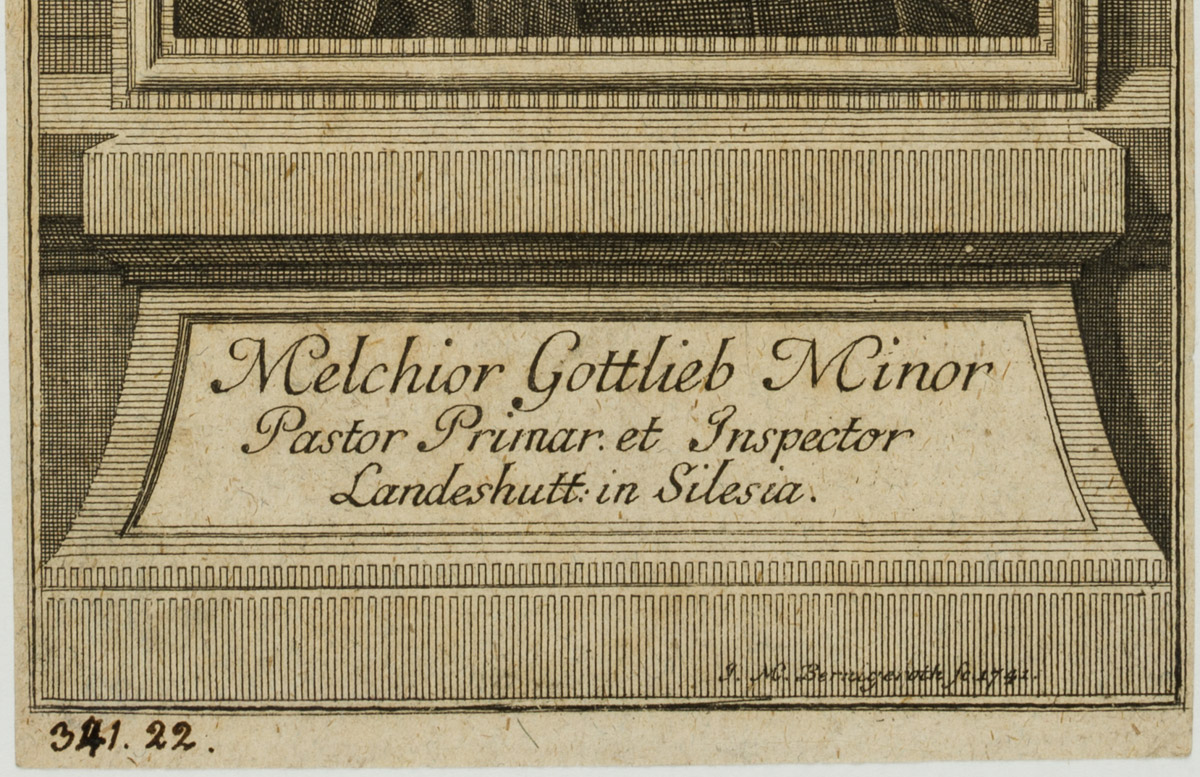 Melchior Gottlieb Minor
Pastor Primar. et Inspector
Landeshutt: in Silesia.
J. M. Bernigeroth sc. 1741.
341. 22.